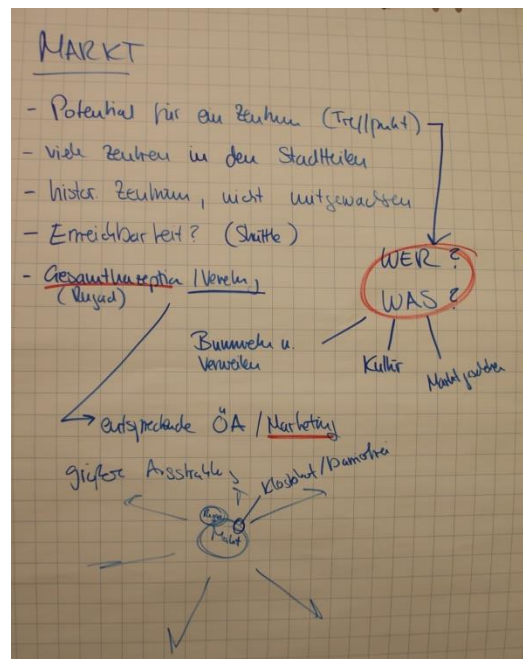 MARKT
- Potential für ein Zentrum (Treffpunkt)
- viele Zentren in den Stadtteilen
- histor. Zentrum, nicht mitgewachsen
- Erreichbarkeit? (Shuttle)
- Gesamtkonzeption / Verein,
WER?
WAS?
Bummeln u.
Verweilen
Kultur
→ entsprechende ÖA / Marketing
größere
Markt